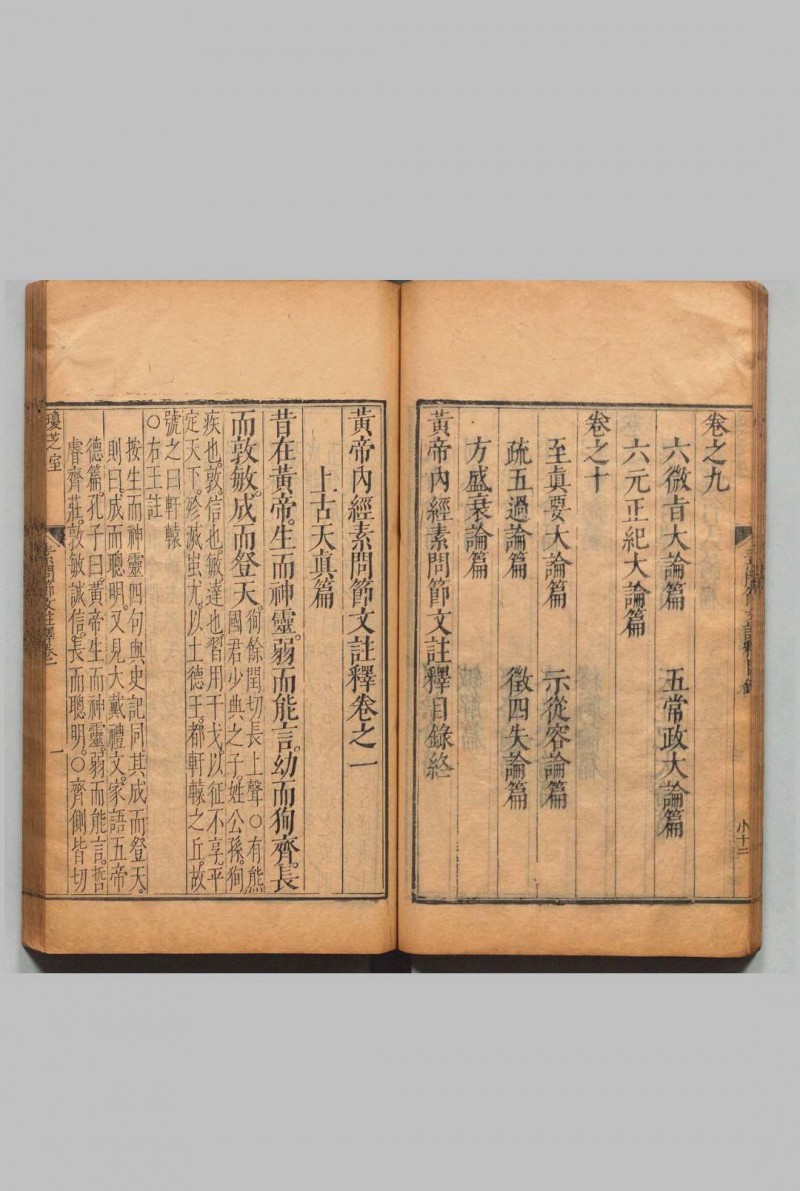 卷之九
六微旨大論篇　五常政大論篇
六元正紀大論篇
卷之十
至真要大論篇　示從容論篇
疏五過論篇　徵四失論篇
方盛衰論篇
黃帝內經素問節文註釋目錄終
黃帝內經素問節文註釋卷之一
上古天真篇
昔在黃帝。生而神靈。弱而能言。幼而狥齊。長
而敦敏。成而登天。狥餘閏切長上聲○有熊
國君少典之子。姓公孫。狥
疾也。敦。信也。敏。達也。習用干戈。以征不享。平
定天下。殄滅蚩尤。以土德王。都軒轅之丘。故
號之曰軒轅
○右王註
按生而神靈四句與史記同其成而登天。
則曰。成而聰明。又見大戴禮文。家語五帝
德篇。孔子曰。黃帝生而神靈。弱而能言。哲
睿齊莊。敦敏誠信。長而聰明。○齊側皆切
瓊芝室
素問節文註釋卷一
一